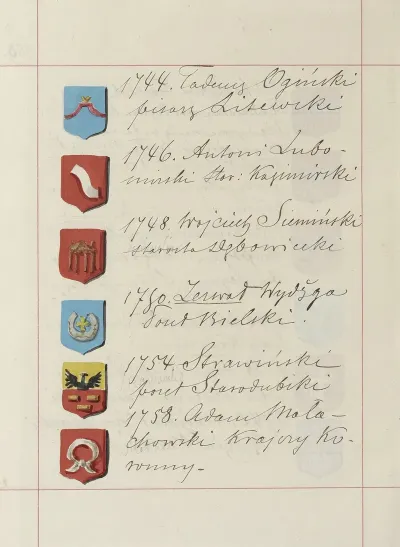 1744. Tadeusz Ogiński
pisarz Litewski
1746. Antoni Lubo-
mirski star: Kazimirski
1748. Wojciech Siemiński
starosta Dębowiecki
1750. Zerwał Wydżga
Posut Bielski.
1754. Strawiński
poseł Starodubski
1758. Adam Mała-
chowski Krajczy Ko-
ronny-